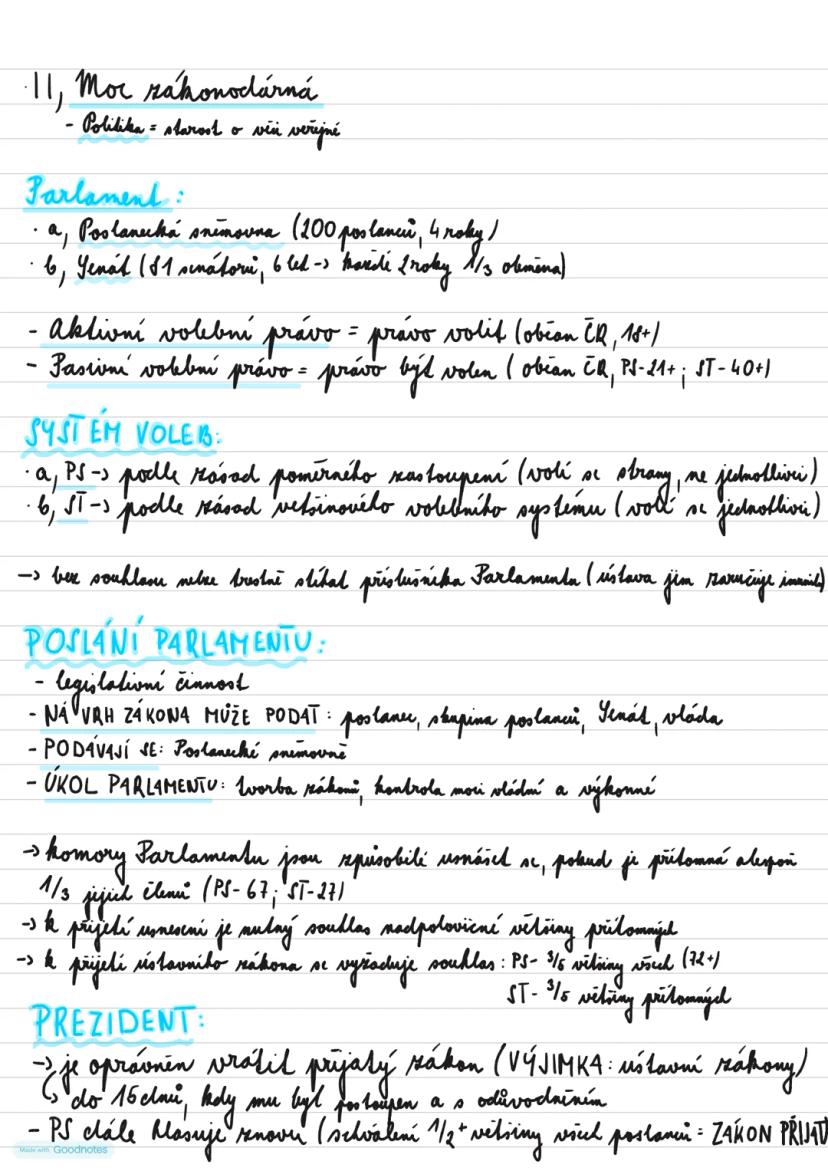 11, Moc zákonodárná
- Politika = starost o věci veřejné
Parlament:
· a, Poslanecká sněmovna (200 poslanců, 4 roky)
· b, Senát (81 senátorů, 6 let -> každé 2 roky 1/3 obměna)
- Aktivní volební právo = právo volit (občan ČR, 18+)
- Pasivní volební právo = právo být volen (občan ČR, PS-21+; ST-40+)
SYSTÉM VOLEB:
· a, PS -> podle zásad poměrného zastoupení (volí se strany, ne jednotlivci)
· b, ST -> podle zásad většinového volebního systému (volí se jednotlivci)
-> bez souhlasu nelze trestně stíhat příslušníka Parlamentu (ústava jim zaručuje imunitu)
POSLÁNÍ PARLAMENTU:
- legislativní činnost
- NÁVRH ZÁKONA MŮŽE PODAT: poslanec, skupina poslanců, Senát, vláda
- PODÁVAJÍ SE: Poslanecké sněmovně
- ÚKOL PARLAMENTU: tvorba zákonů, kontrola moci vládní a výkonné
-> komory Parlamentu jsou způsobilé usnášet se, pokud je přítomná alespoň
1/3 jejich členů (PS-67; ST-27)
-> k přijetí usnesení je nutný souhlas nadpoloviční většiny přítomných
-> k přijetí ústavního zákona se vyžaduje souhlas: PS- 3/5 většiny všech (72+)
ST- 3/5 většiny přítomných
PREZIDENT:
-> je oprávněn vrátit přijatý zákon (VÝJIMKA: ústavní zákony)
↳ do 15 dnů, kdy mu byl postoupen a s odůvodněním
- PS dále hlasuje znovu (schválení 1/2+ většiny všech poslanců = ZÁKON PŘIJAT
Made with Goodnotes